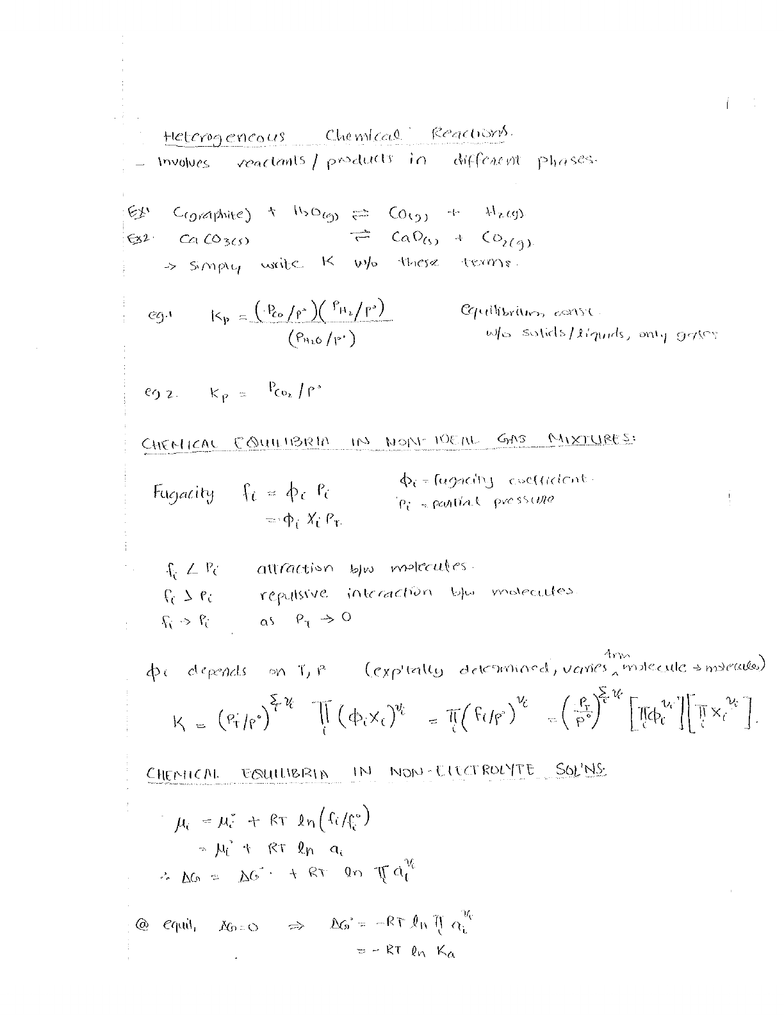 1
Heterogeneous Chemical Reactions.
- Involves reactants / products in different phases.
Ex1 C(graphite) + H₂O(g) ⇌ CO(g) + H₂(g)
Ex2. CaCO₃(s) ⇌ CaO(s) + CO₂(g).
→ simply write K w/o these terms.
eg.1 Kp = (P_CO/p°)(P_H₂/p°) / (P_H₂O/p°) Equilibrium const.
w/o solids/liquids, only gases
eg 2. Kp = P_CO₂/p°
CHEMICAL EQUILIBRIA IN NON-IDEAL GAS MIXTURES:
Fugacity fᵢ = φᵢ Pᵢ φᵢ = fugacity coefficient.
= φᵢ Xᵢ P_T. Pᵢ = partial pressure
fᵢ < Pᵢ attraction b/w molecules.
fᵢ > Pᵢ repulsive interaction b/w molecules
fᵢ → Pᵢ as P_T → 0
φᵢ depends on T, P (exp'tally determined, varies from molecule → molecule)
K = (P_T/p°)^(Σᵢ νᵢ) Πᵢ (φᵢxᵢ)^νᵢ = Πᵢ (fᵢ/p°)^νᵢ = (P_T/p°)^(Σᵢ νᵢ) [Πᵢ φᵢ^νᵢ][Πᵢ xᵢ^νᵢ].
CHEMICAL EQUILIBRIA IN NON-ELECTROLYTE SOL'NS:
μᵢ = μᵢ° + RT ln(fᵢ/fᵢ°)
= μᵢ° + RT ln aᵢ
∴ ΔG = ΔG° + RT ln Πᵢ aᵢ^νᵢ
@ equil, ΔG=0 ⇒ ΔG° = -RT ln Πᵢ aᵢ^νᵢ
= - RT ln Ka